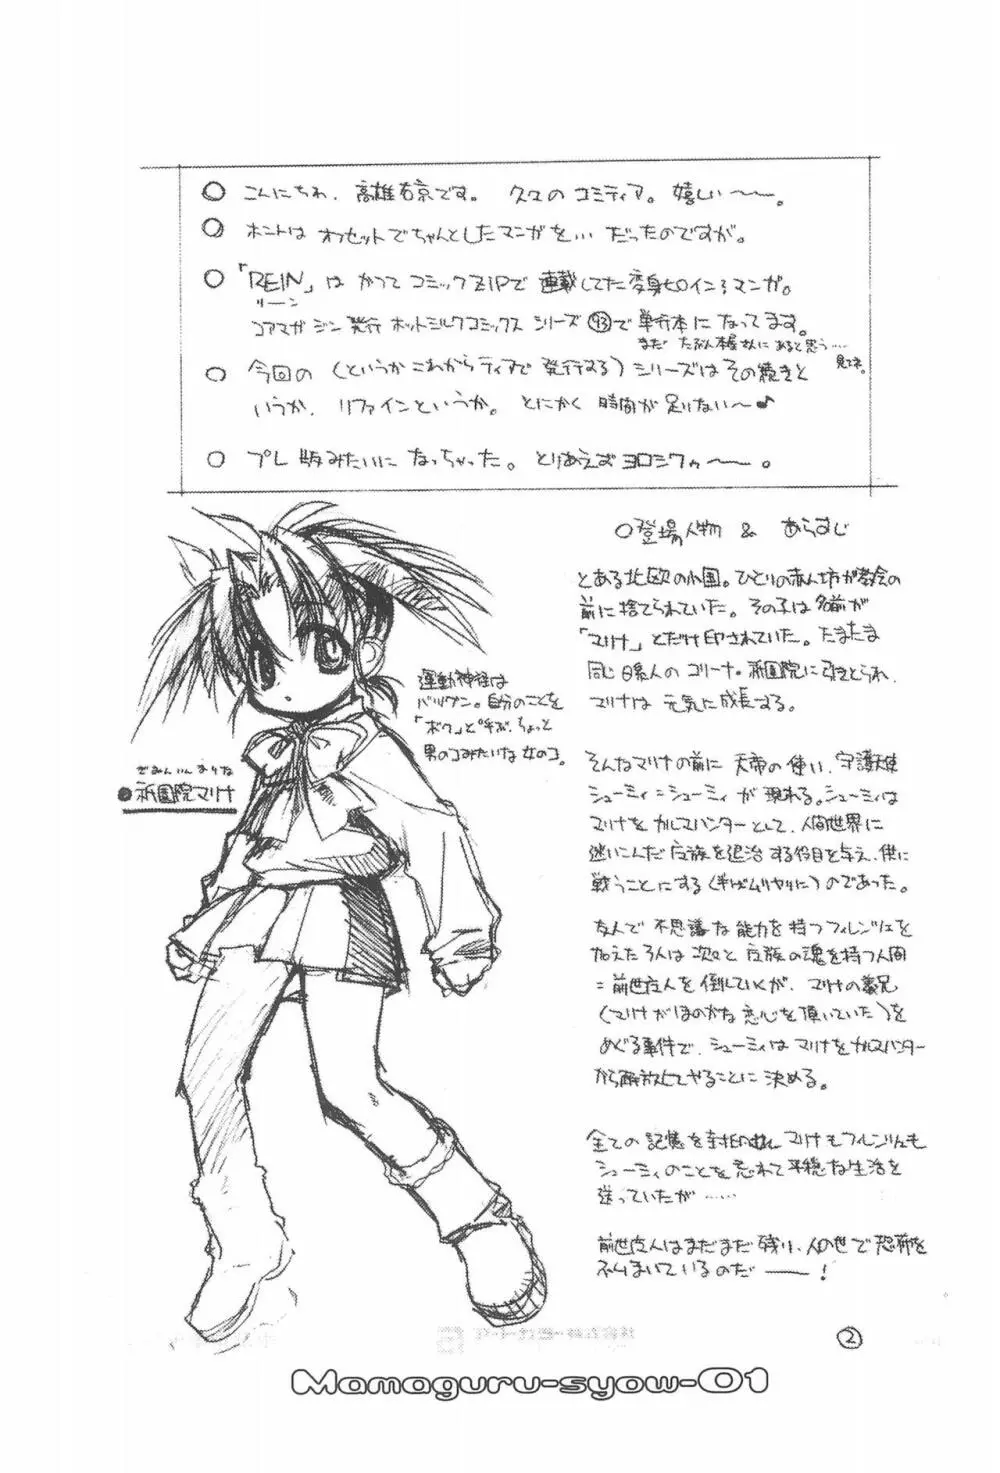 ○ こんにちわ、高雄右京です。 久々のコミティア。嬉しい〜〜。
○ ホントは オフセットでちゃんとしたマンガを… だったのですが。
○ 「REIN」は かつて コミックZIPで 連載してた変身ヒロインマンガ。
リーン
コアマガジン発行 ホットミルクコミックス シリーズ 93で 単行本になってます。
まだ たぶん本屋さんにあると思う…
見てネ。
○ 今回の (というかこれからティアで 発行する) シリーズはその続きと
いうか、リファインというか。とにかく 時間が足りない〜♪
○ プレ版みたいに なっちゃった。とりあえず ヨロシクゥ〜〜。
○登場人物 & あらすじ
とある北欧の小国。ひとりの赤ん坊が教会の
前に捨てられていた。その子は名前が
「マリナ」とだけ印されていた。たまたま
同じ日系人の コリーナ・祇園院に引きとられ、
マリナは 元気に成長する。
運動神経は
バツグン。自分のことを
「ボク」と呼ぶ、ちょっと
男のコみたいな女のコ。
ぎおんいんまりな
●祇園院マリナ
そんなマリナの前に 天帝の使い、守護天使
シューミィ=シューミィ が 現れる。シューミィは
マリナを カルマハンターとして、人間世界に
迷いこんだ 妖族を退治する役目を与え、供に
戦うことにする(半ばムリヤリに)のであった。
友人で 不思議な能力を持つフレンジェを
加えた3人は 次々と 妖族の魂を持つ人間
=前世妖人を 倒していくが、マリナの義兄
(マリナがほのかな 恋心を頂いていた)を
めぐる事件で、シューミィは マリナをカルマハンター
から解放してやることに 決める。
全ての記憶を封印され マリナもフレンジェも
シューミィのことを 忘れて平穏な生活を
送っていたが……
前世妖人はまだまだ残り、人の世で恐怖を
ふりまいているのだ――!
アートカラー株式会社
②
Mamaguru-syow-01